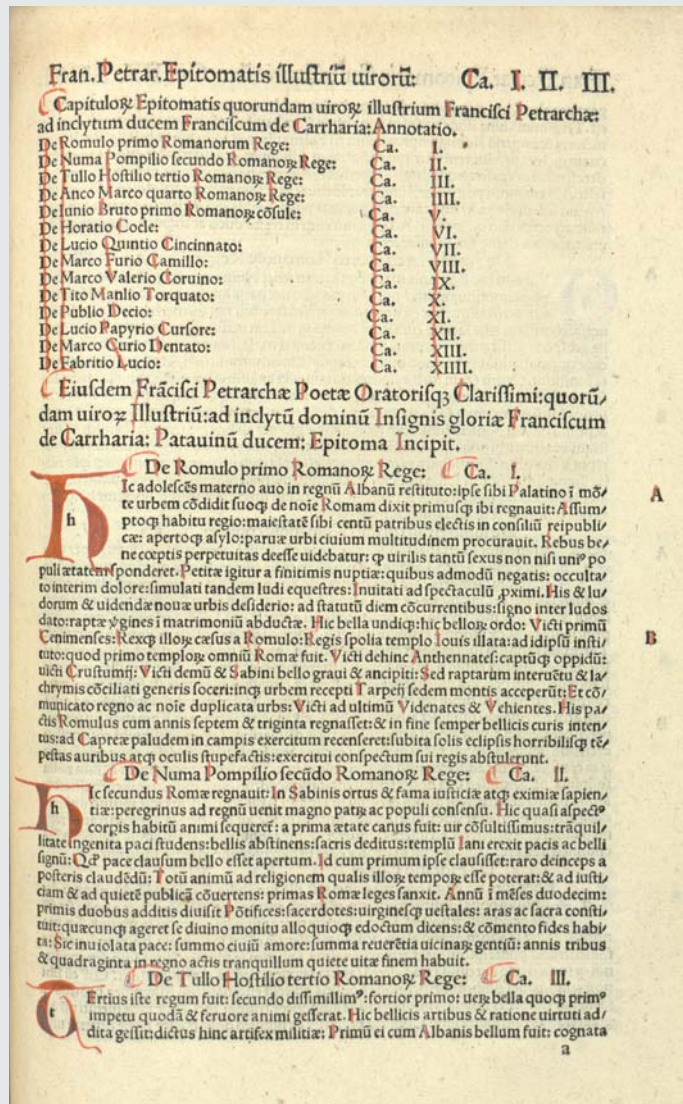 Fran. Petrar. Epitomatis illustriū uirorū: Ca. I. II. III.
Capituloꝝ Epitomatis quorundam uiroꝝ illustrium Francisci Petrarchæ:
ad inclytum ducem Franciscum de Carrharia: Annotatio.
De Romulo primo Romanorum Rege: Ca. I.
De Numa Pompilio secundo Romanoꝝ Rege: Ca. II.
De Tullo Hostilio tertio Romanoꝝ Rege: Ca. III.
De Anco Marco quarto Romanoꝝ Rege: Ca. IIII.
De Iunio Bruto primo Romanoꝝ cōsule: Ca. V.
De Horatio Cocle: Ca. VI.
De Lucio Quintio Cincinnato: Ca. VII.
De Marco Furio Camillo: Ca. VIII.
De Marco Valerio Coruino: Ca. IX.
De Tito Manlio Torquato: Ca. X.
De Publio Decio: Ca. XI.
De Lucio Papyrio Cursore: Ca. XII.
De Marco Curio Dentato: Ca. XIII.
De Fabritio Lucio: Ca. XIIII.
Eiusdem Frācisci Petrarchæ Poetæ Oratorisqꝫ Clarissimi: quorū/
dam uiroꝝ Illustriū: ad inclytū dominū Insignis gloriæ Franciscum
de Carrharia: Patauinū ducem: Epitoma Incipit.
De Romulo primo Romanoꝝ Rege: Ca. I.
h Ic adolescēs materno auo in regnū Albanū restituto: ipse sibi Palatino ī mō/
te urbem cōdidit suoqꝫ de noīe Romam dixit primusqꝫ ibi regnauit: Assum/
ptoqꝫ habitu regio: maiestatē sibi centū patribus electis in consiliū reipubli/
cæ: apertoqꝫ asylo: paruæ urbi ciuium multitudinem procurauit. Rebus be/
ne cœptis perpetuitas deesse uidebatur: ꝙ uirilis tantū sexus non nisi uniꝰ po
puli ætatem responderet. Petitæ igitur a finitimis nuptiæ: quibus admodū negatis: occulta/
to interim dolore: simulati tandem ludi equestres: Inuitati ad spectaculū ꝓximi. His & lu/
dorum & uidendæ nouæ urbis desiderio: ad statutū diem cōcurrentibus: signo inter ludos
dato: raptæ ꝟgines ī matrimoniū abductæ. Hic bella undiqꝫ: hic belloꝝ ordo: Victi primū
Cenimenses: Rexqꝫ illoꝝ cæsus a Romulo: Regis spolia templo Iouis illata: ad idipsū insti/
tuto: quod primo temploꝝ omniū Romæ fuit. Victi dehinc Anthennates: captūqꝫ oppidū:
uicti Crustumij: Victi demū & Sabini bello graui & ancipiti: Sed raptarum interuētu & la/
chrymis cōciliati generis soceri: inqꝫ urbem recepti Tarpeij sedem montis acceperūt: Et cō/
municato regno ac noīe duplicata urbs: Victi ad ultimū Videnates & Vehientes. His pa/
ctis Romulus cum annis septem & triginta regnasset: & in fine semper bellicis curis inten/
tus: ad Capreæ paludem in campis exercitum recenseret: subita solis eclipsis horribilisqꝫ tē/
pestas auribus atqꝫ oculis stupefactis: exercitui conspectum sui regis abstulerunt.
De Numa Pompilio secūdo Romanoꝝ Rege: Ca. II.
h Ic secundus Romæ regnauit: In Sabinis ortus & fama iusticiæ atqꝫ eximiæ sapien/
tiæ: peregrinus ad regnū uenit magno patꝝ ac populi consensu. Hic quasi aspectꝰ
corpis habitū animi sequereť: a prima ætate canus fuit: uir cōsultissimus: trāquil/
litate ingenita paci studens: bellis abstinens: sacris deditus: templū Iani erexit pacis ac belli
signū: Qđ pace clausum bello esset apertum. Id cum primum ipse clausisset: raro deinceps a
posteris claudēdū: Totū animū ad religionem qualis illoꝝ tempoꝝ esse poterat: & ad iusti/
ciam & ad quietē publicā cōuertens: primas Romæ leges sanxit. Annū ī mēses duodecim:
primis duobus additis diuisit Pōtifices: sacerdotes: uirginesqꝫ uestales: aras ac sacra consti/
tuit: quæcunqꝫ ageret se diuino monitu alloquioqꝫ edoctum dicens: & cōmento fides habi/
ta: Sic inuiolata pace: summo ciuiū amore: summa reuerētia uicinaꝝ gentiū: annis tribus
& quadraginta in regno actis tranquillum quiete uitæ finem habuit.
De Tullo Hostilio tertio Romanoꝝ Rege: Ca. III.
t Ertius iste regum fuit: secundo dissimillimꝰ: fortior primo: ueꝝ bella quoqꝫ primꝰ
impetu quodā & feruore animi gesserat. Hic bellicis artibus & ratione uirtuti ad/
dita gessit: dictus hinc artifex militiæ: Primū ei cum Albanis bellum fuit: cognata
a
A
B